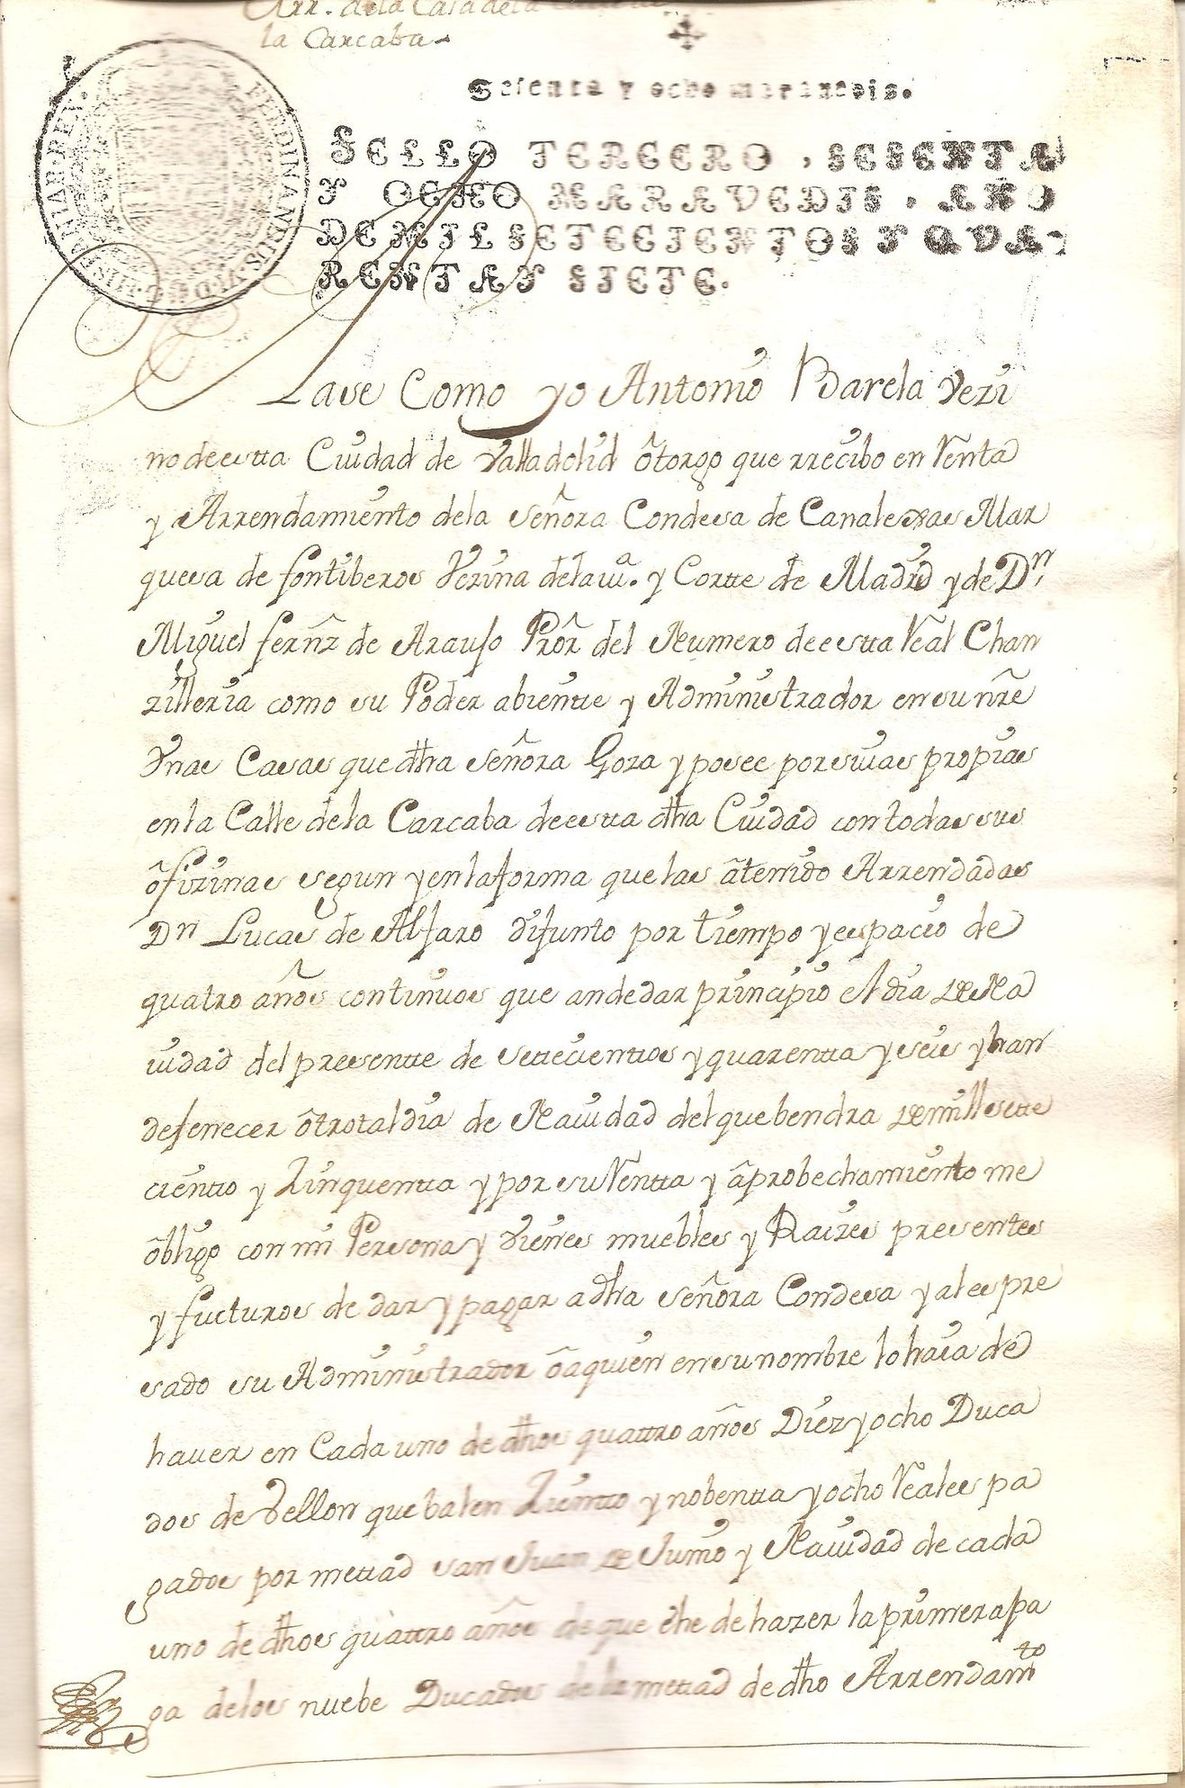 Arr. dela Casa dela Calle de
la Carcaba
Sesenta y ocho maravedis.
FERDINANDUS. VI. D. G. HISPANIAR. REX.
SELLO TERCERO, SESENTA
Y OCHO MARAVEDIS, AÑO
DE MIL SETECIENTOS Y QVA-
RENTA Y SIETE.
Lase Como yo Antonio Barela Vezi
no de estta Ciudad de Valladolid ôtorgo que rrecibo en Rentta
y Arrendamiento dela señora Condesa de Canalexas Mar
quesa de fontiberos Vezina delauª. y Cortte de Madrid y de Dn.
Miguel fernz de Araujo Pror del Numero de estta Real Chan
zilleria como su Poder abientte y Administrador en su nre
Unas Casas que dha señora Goza y posee por suias propias
en la Calle dela Carcaba de estta dha Ciudad con todas sus
ôfizinas segun y en la forma que las âtenido Arrendadas
Dn Lucas de Alfaro difunto por tiempo y espacio de
quatro años continuos que an de dar principio el dia de Na
uidad del presentte de settecienttos y quarentta y seis y han
de fenecer ôtro tal dia de Nauidad del que bendra de mill sette
cientto y Zinquentta y por su Rentta y âprobechamiento me
ôbligo con mi Persona y vienes muebles y Raizes presentes
y fucturos de dar y pagar a dha señora Condesa y al espre
sado su Administrador ôa quien en su nombre lo haia de
hauer en Cada uno de dhos quattro años Diez y ocho Duca
dos de Vellon que balen Zientto y nobentta y ocho Reales pa
gados por mettad san Juan de Junio y Nauidad de cada
uno de dhos quattro años de que ê he de hazer la primera pa
ga delos nuebe Ducados de la mettad de dho Arrendamto